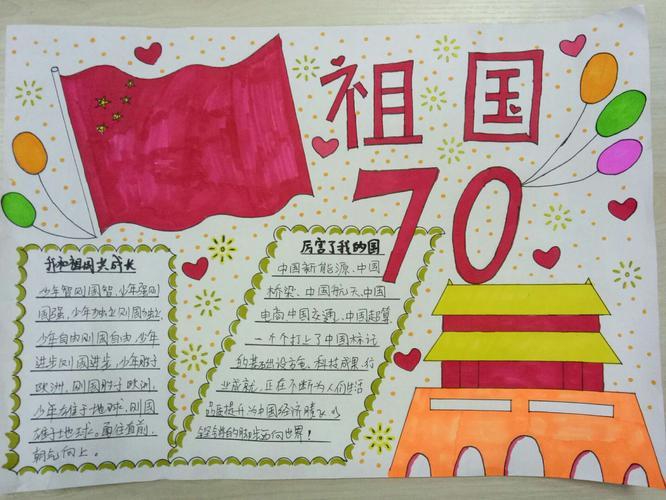 祖国
70
我和祖国共成长
少年智则国智,少年强则
国强,少年独立则国独立
少年自由则国自由,少年
进步则国进步,少年胜于
欧洲,则国胜于欧洲,
少年雄于地球,则国
雄于地球。勇往直前,
朝气向上。
厉害了我的国
中国新能源、中国
桥梁、中国航天、中国
电商中国交通、中国超算
一个个打上了中国标记
的基础设施、科技成果、行
业成就,正在不断为人们生活
品质提升为中国经济腾飞以
铿锵的脚步迈向世界!